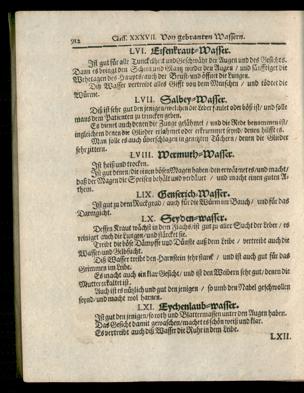 912 Class. XXXVII. Von gebranten Wassern.
LVI. Eisenkraut-Wasser.
Ist gut für alle Tunckelheit und Geschwähr der Augen und des Gesichts.
Dann es bringt den Schein und Glantz wieder den Augen / und sänfftiget die
Wehetagen des Haupts / auch der Brust und öffnet die Lungen.
Diß Wasser vertreibt alles Gifft von dem Menschen / und tödtet die
Würme.
LVII. Salbey-Wasser.
Diß ist sehr gut den jenigen welchen die Leber faulet oder böß ist / und solle
mans dem Patienten zu trincken geben.
Es dienet auch denen die Zunge gelähmet / und die Rede benommen ist /
ingleichem denen die Glieder erlahmet oder erkrummet seynd / denen hilfft es.
Man solle es auch überschlagen in genetzten Tüchern / denen die Glieder
sehr zittern.
LVIII. Wermuth-Wasser.
Ist heiß und trocken.
Ist gut denen / die einen bösen Magen haben den erwärmet es / und macht /
daß der Magen die Speisen behält und verdäuet / und macht einen guten A-
them.
LIX. Genserich-Wasser.
Ist gut zu dem Rückgrad / auch für die Würm im Bauch / und für das
Darmgicht.
LX. Seyden-wasser.
Dessen Kraut wächst in dem Flachs / ist gut zu aller Sucht der Leber / es
reiniget auch die Lungen / und stärcket sie.
Treibt die böse Dämpffe und Dünste auß dem Leibe / vertreibt auch die
Wasser- und Gelbsucht.
Diß Wasser treibt den Harnstein sehr starck / und ist auch gut für das
Grimmen im Leibe.
Es macht auch ein klar Gesicht / und ist den Weibern sehr gut / denen die
Mutter erkaltet ist.
Auch ist es nützlich und gut den jenigen / so umb den Nabel geschwollen
seynd / und macht wol harnen.
LXI. Eychenlaub-wasser.
Ist gut den jenigen / so roth und Blattermassen unter den Augen haben.
Das Gesicht damit gewaschen / machet es schön weiß und klar.
Es vertreibt auch diß Wasser die Ruhr in dem Leibe.
LXII.